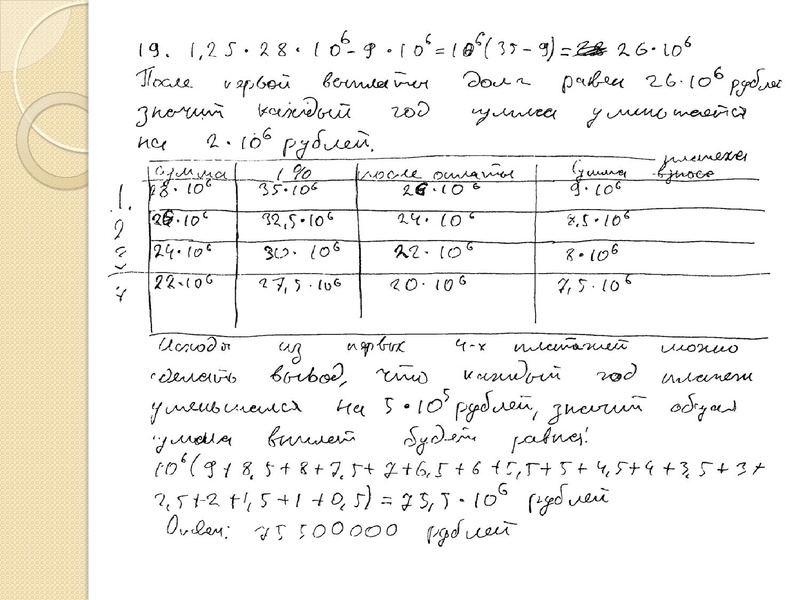 19. 1,25 · 28 · 10⁶ - 9 · 10⁶ = 10⁶(35 - 9) = 26 · 10⁶
После первой выплаты долг равен 26 · 10⁶ рублей
значит каждый год сумма уменьшается
на 2 · 10⁶ рублей.
сумма | % | после оплаты | сумма платежа взноса
1. 28 · 10⁶ | 35 · 10⁶ | 26 · 10⁶ | 9 · 10⁶
2 26 · 10⁶ | 32,5 · 10⁶ | 24 · 10⁶ | 8,5 · 10⁶
3 24 · 10⁶ | 30 · 10⁶ | 22 · 10⁶ | 8 · 10⁶
4 22 · 10⁶ | 27,5 · 10⁶ | 20 · 10⁶ | 7,5 · 10⁶
Исходя из первых 4-х платежей можно
сделать вывод, что каждый год платеж
уменьшался на 5 · 10⁵ рублей, значит общая
сумма выплат будет равна:
10⁶(9 + 8,5 + 8 + 7,5 + 7 + 6,5 + 6 + 5,5 + 5 + 4,5 + 4 + 3,5 + 3 +
2,5 + 2 + 1,5 + 1 + 0,5) = 75,5 · 10⁶ рублей
Ответ: 75 500000 рублей